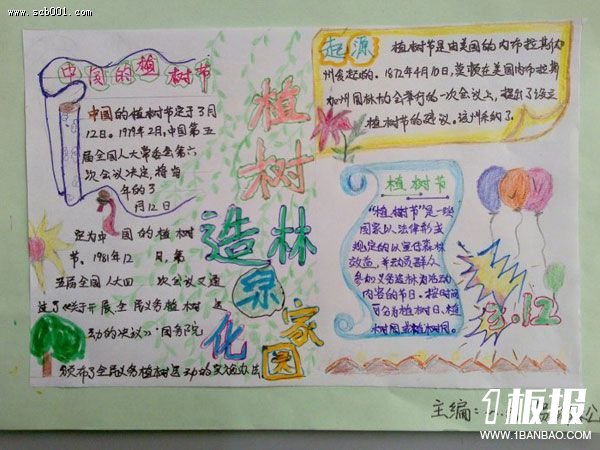 www.szb001.com
中国的植树节
中国的植树节定于3月
12日。1979年2月,中国第五
届全国人大常委会第六
次会议决定,将每
年的3
月12日
定为中国的植树
节。1981年12月,第
五届全国人大四次会议又通
过了《关于开展全民义务植树运
动的决议》。国务院
颁布了全民义务植树运动的实施办法
植树
造林
绿化
家园
起源
植树节是由美国的内布拉斯加
州发起的。1872年4月10日,莫顿在美国内布拉斯
加州园林协会举行的一次会议上,提出了设立
植树节的建议。该州采纳了。
植树节
“植树节”是一些
国家以法律形式
规定的以宣传森林
效益,并动员群众
参加义务造林为活动
内容的节日。按时间
可分为植树日、植
树周或植树月。
3.12
主编:
1板报
WWW.1BANBAO.COM